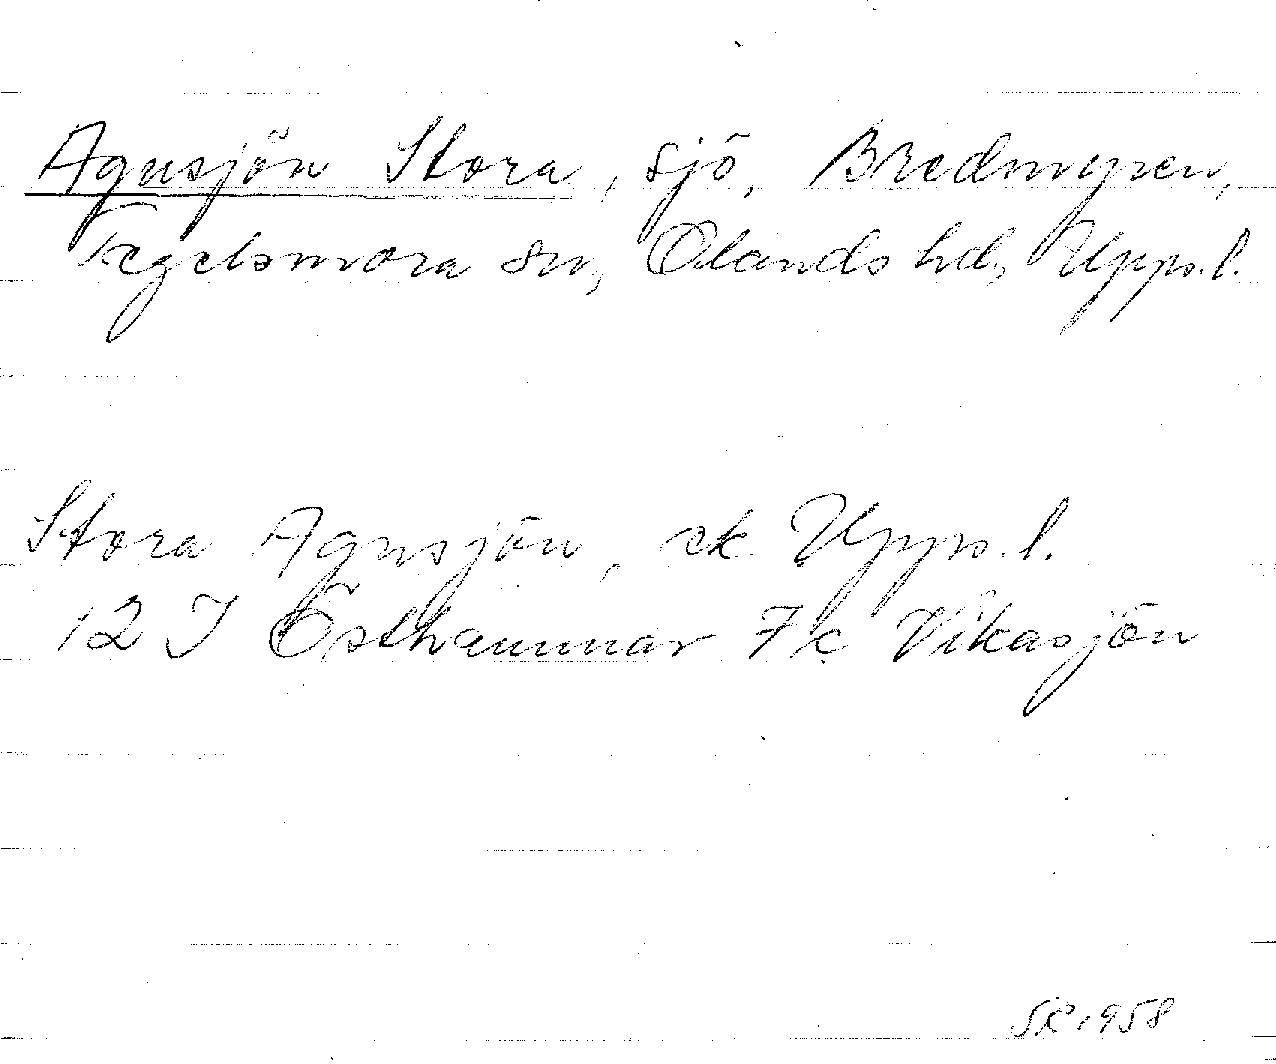 Agnsjön Stora, sjö, Bredmyren,
Tegelsmora sn, Ölands hd, Upps. l.
Stora Agnsjön, ek Upps. l.
12 I Östhammar 7 c Vikasjön
SK 1958